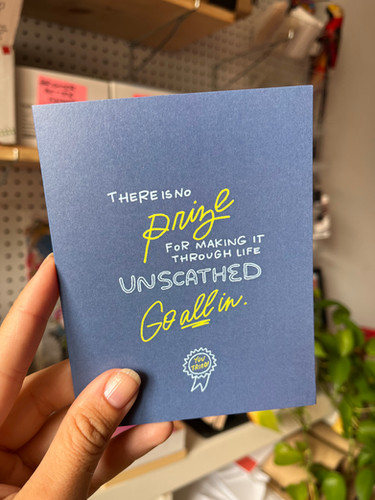 THERE IS NO
prize
FOR MAKING IT
THROUGH LIFE
UNSCATHED
Go all in.
YOU
TRIED!